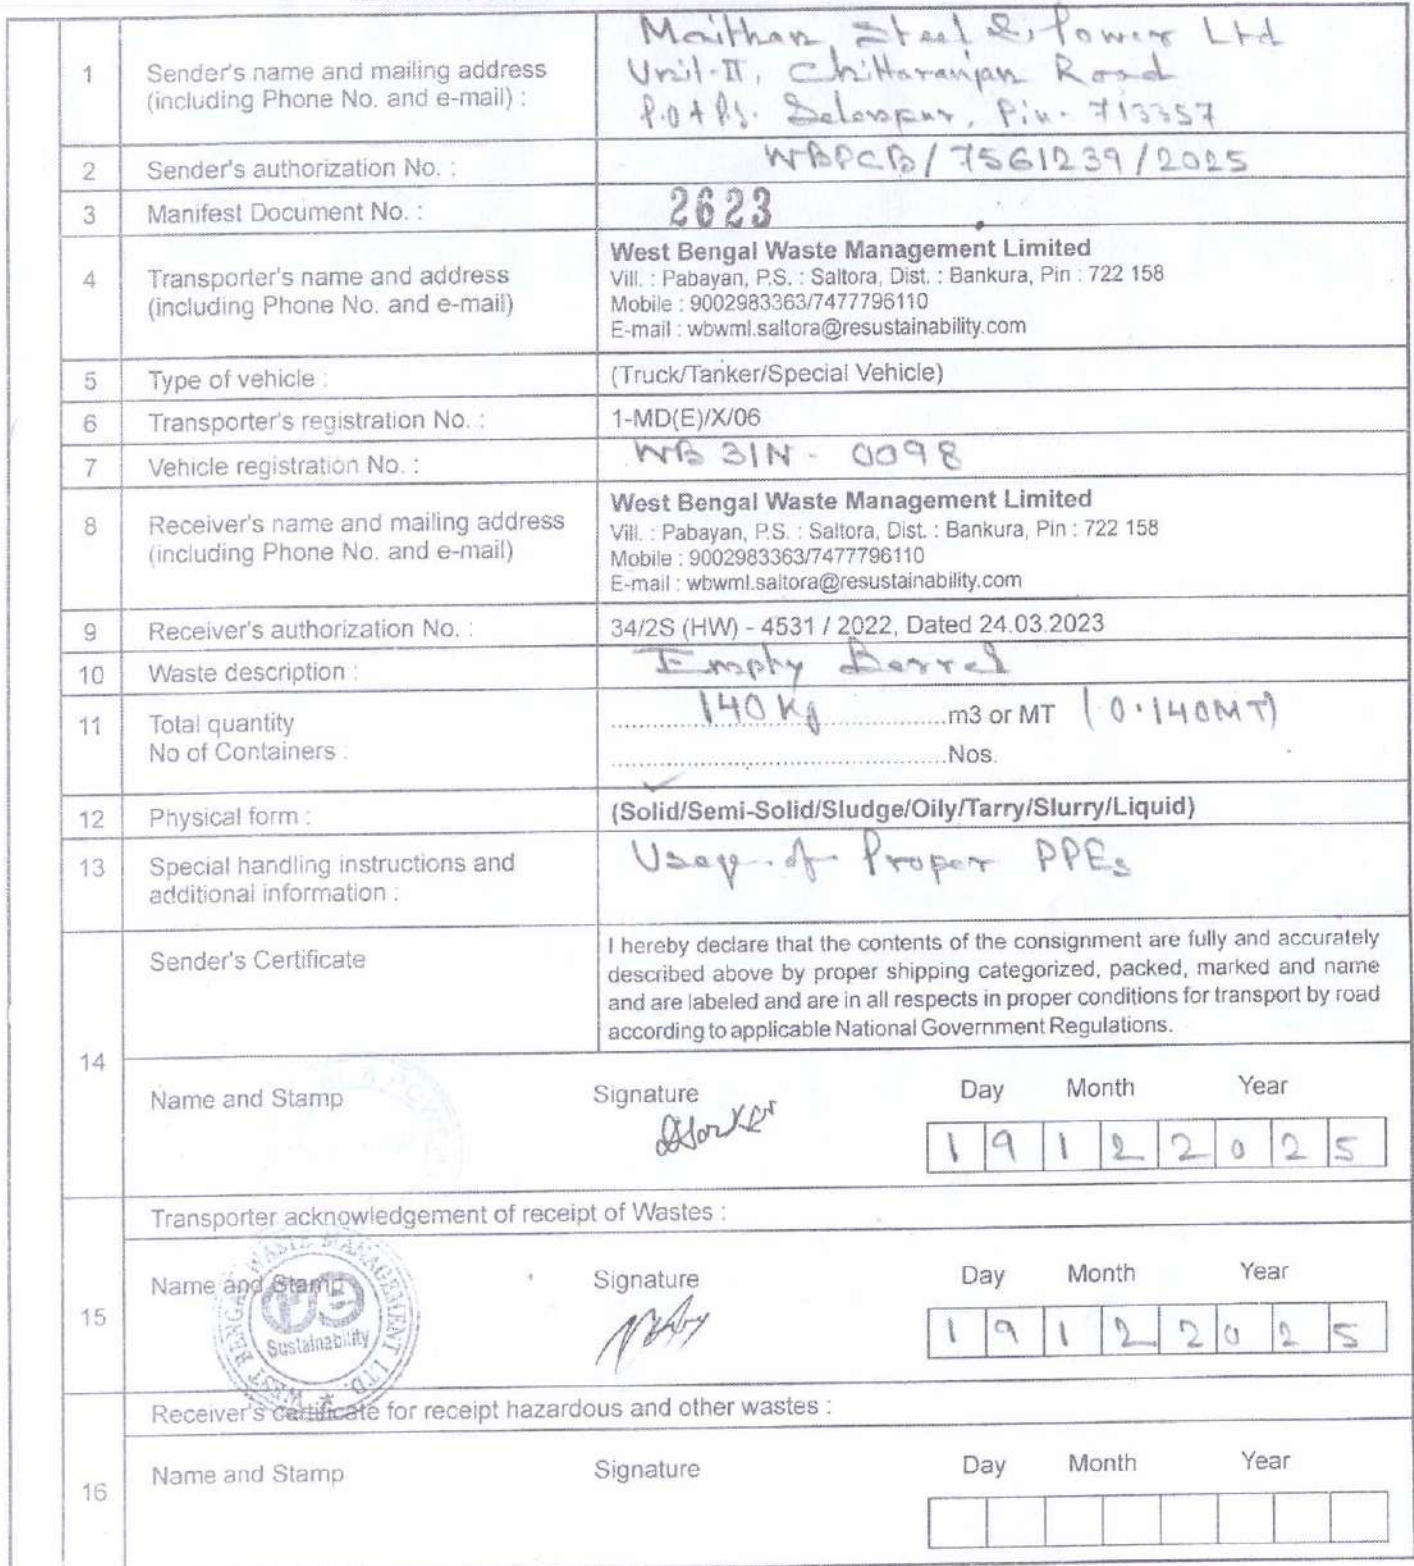 1
Sender's name and mailing address
(including Phone No. and e-mail) :
Maithan Steel & Power Ltd
Unit-II, Chittaranjan Road
P.O+P.S. Salanpur, Pin- 713357
2 Sender's authorization No. : WBPCB/7561239/2025
3 Manifest Document No. : 2623
4
Transporter's name and address
(including Phone No. and e-mail)
West Bengal Waste Management Limited
Vill. : Pabayan, P.S. : Saltora, Dist. : Bankura, Pin : 722 158
Mobile : 9002983363/7477796110
E-mail : wbwml.saltora@resustainability.com
5 Type of vehicle : (Truck/Tanker/Special Vehicle)
6 Transporter's registration No. : 1-MD(E)/X/06
7 Vehicle registration No. : WB 31N - 0098
8
Receiver's name and mailing address
(including Phone No. and e-mail)
West Bengal Waste Management Limited
Vill. : Pabayan, P.S. : Saltora, Dist. : Bankura, Pin : 722 158
Mobile : 9002983363/7477796110
E-mail : wbwml.saltora@resustainability.com
9 Receiver's authorization No. : 34/2S (HW) - 4531 / 2022, Dated 24.03.2023
10 Waste description : Empty Barrel
11 Total quantity 140 Kg m3 or MT (0.140MT)
No of Containers : Nos.
12 Physical form : (Solid/Semi-Solid/Sludge/Oily/Tarry/Slurry/Liquid)
13
Special handling instructions and
additional information :
Usage of Proper PPEs
14
Sender's Certificate
I hereby declare that the contents of the consignment are fully and accurately
described above by proper shipping categorized, packed, marked and name
and are labeled and are in all respects in proper conditions for transport by road
according to applicable National Government Regulations.
Name and Stamp Signature Day Month Year
1 9 1 2 2 0 2 5
15
Transporter acknowledgement of receipt of Wastes :
Name and Stamp Signature Day Month Year
1 9 1 2 2 0 2 5
WEST BENGAL WASTE MANAGEMENT LTD.
Sustainability
16
Receiver's certificate for receipt hazardous and other wastes :
Name and Stamp Signature Day Month Year